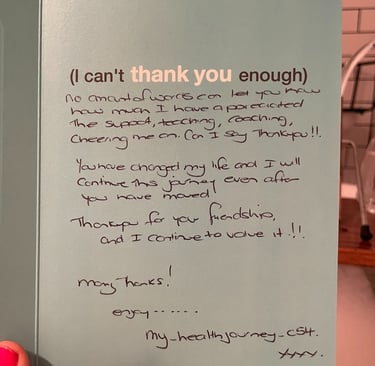 (I can't thank you enough)
No amount of words can let you know
how much I have appreciated
the support, teaching, coaching,
cheering me on. Can I say Thankyou!!.
You have changed my life and I will
continue this journey even after
you have moved.
Thankyou for your friendship,
and I continue to value it!!.
many Thanks!
enjoy......
my_healthjourney_cs4.
xxxx.